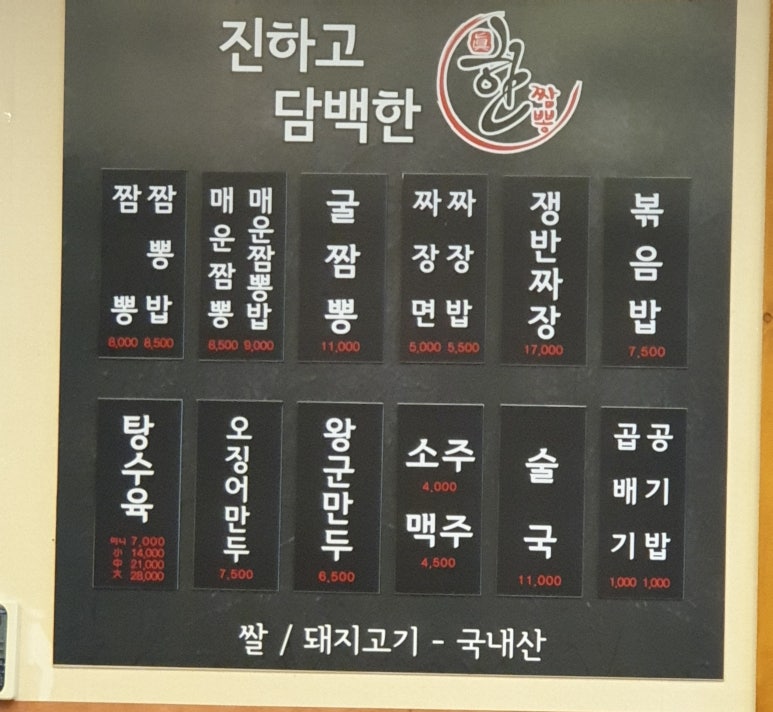 진하고
담백한
眞
짬뽕
짬뽕 8,000
짬뽕밥 8,500
매운짬뽕 8,500
매운짬뽕밥 9,000
굴짬뽕
11,000
짜장면 5,000
짜장밥 5,500
쟁반짜장
17,000
볶음밥
7,500
탕수육
미니 7,000
小 14,000
中 21,000
大 28,000
오징어만두
7,500
왕군만두
6,500
소주
4,000
맥주
4,500
술국
11,000
곱배기 1,000
공기밥 1,000
쌀 / 돼지고기 - 국내산